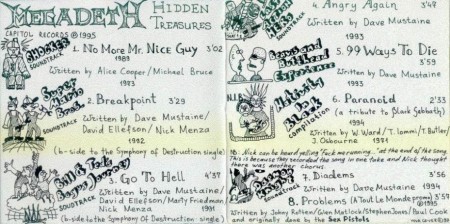 MEGADETH HIDDEN TREASURES
CAPITOL RECORDS ©1995
SHOCKER SOUNDTRACK
1. No More Mr. Nice Guy 3'02
1989
Written by Alice Cooper/Michael Bruce
1973
Super Mario Bros. SOUNDTRACK
2. Breakpoint 3'29
Written by Dave Mustaine/
David Ellefson/Nick Menza
1992
(b-side to the Symphony of Destruction single)
Bill & Ted's Bogus Journey SOUNDTRACK
3. Go To Hell 4'37
Written by Dave Mustaine/
David Ellefson/Marty Friedman/
Nick Menza 1991
(b-side to the Symphony Of Destruction single)
4. Angry Again 3'47
Written by Dave Mustaine
1993
Beavis and Butthead Experience
5. 99 Ways To Die
3'59
Written by Dave Mustaine
1993
N.I.B.
Nativity In Black compilation
6. Paranoid 2'33
(a tribute to Black Sabbath)
1994
Written by W. Ward/T. Iommi/T. Butler/
J. Osbourne 1971
Nick can be heard yelling "fuck me running" at the end of the song.
This is because they recorded the song in one take and Nick thought
there was another chorus.
7. Diadems 3'56
Written by Dave Mustaine 1994
8. Problems (A Tout Le Monde promo) 3'57
Written by Johny Rotten/Glen Matlock/Stephen Jones/Paul Cook
originally done by the Sex Pistols